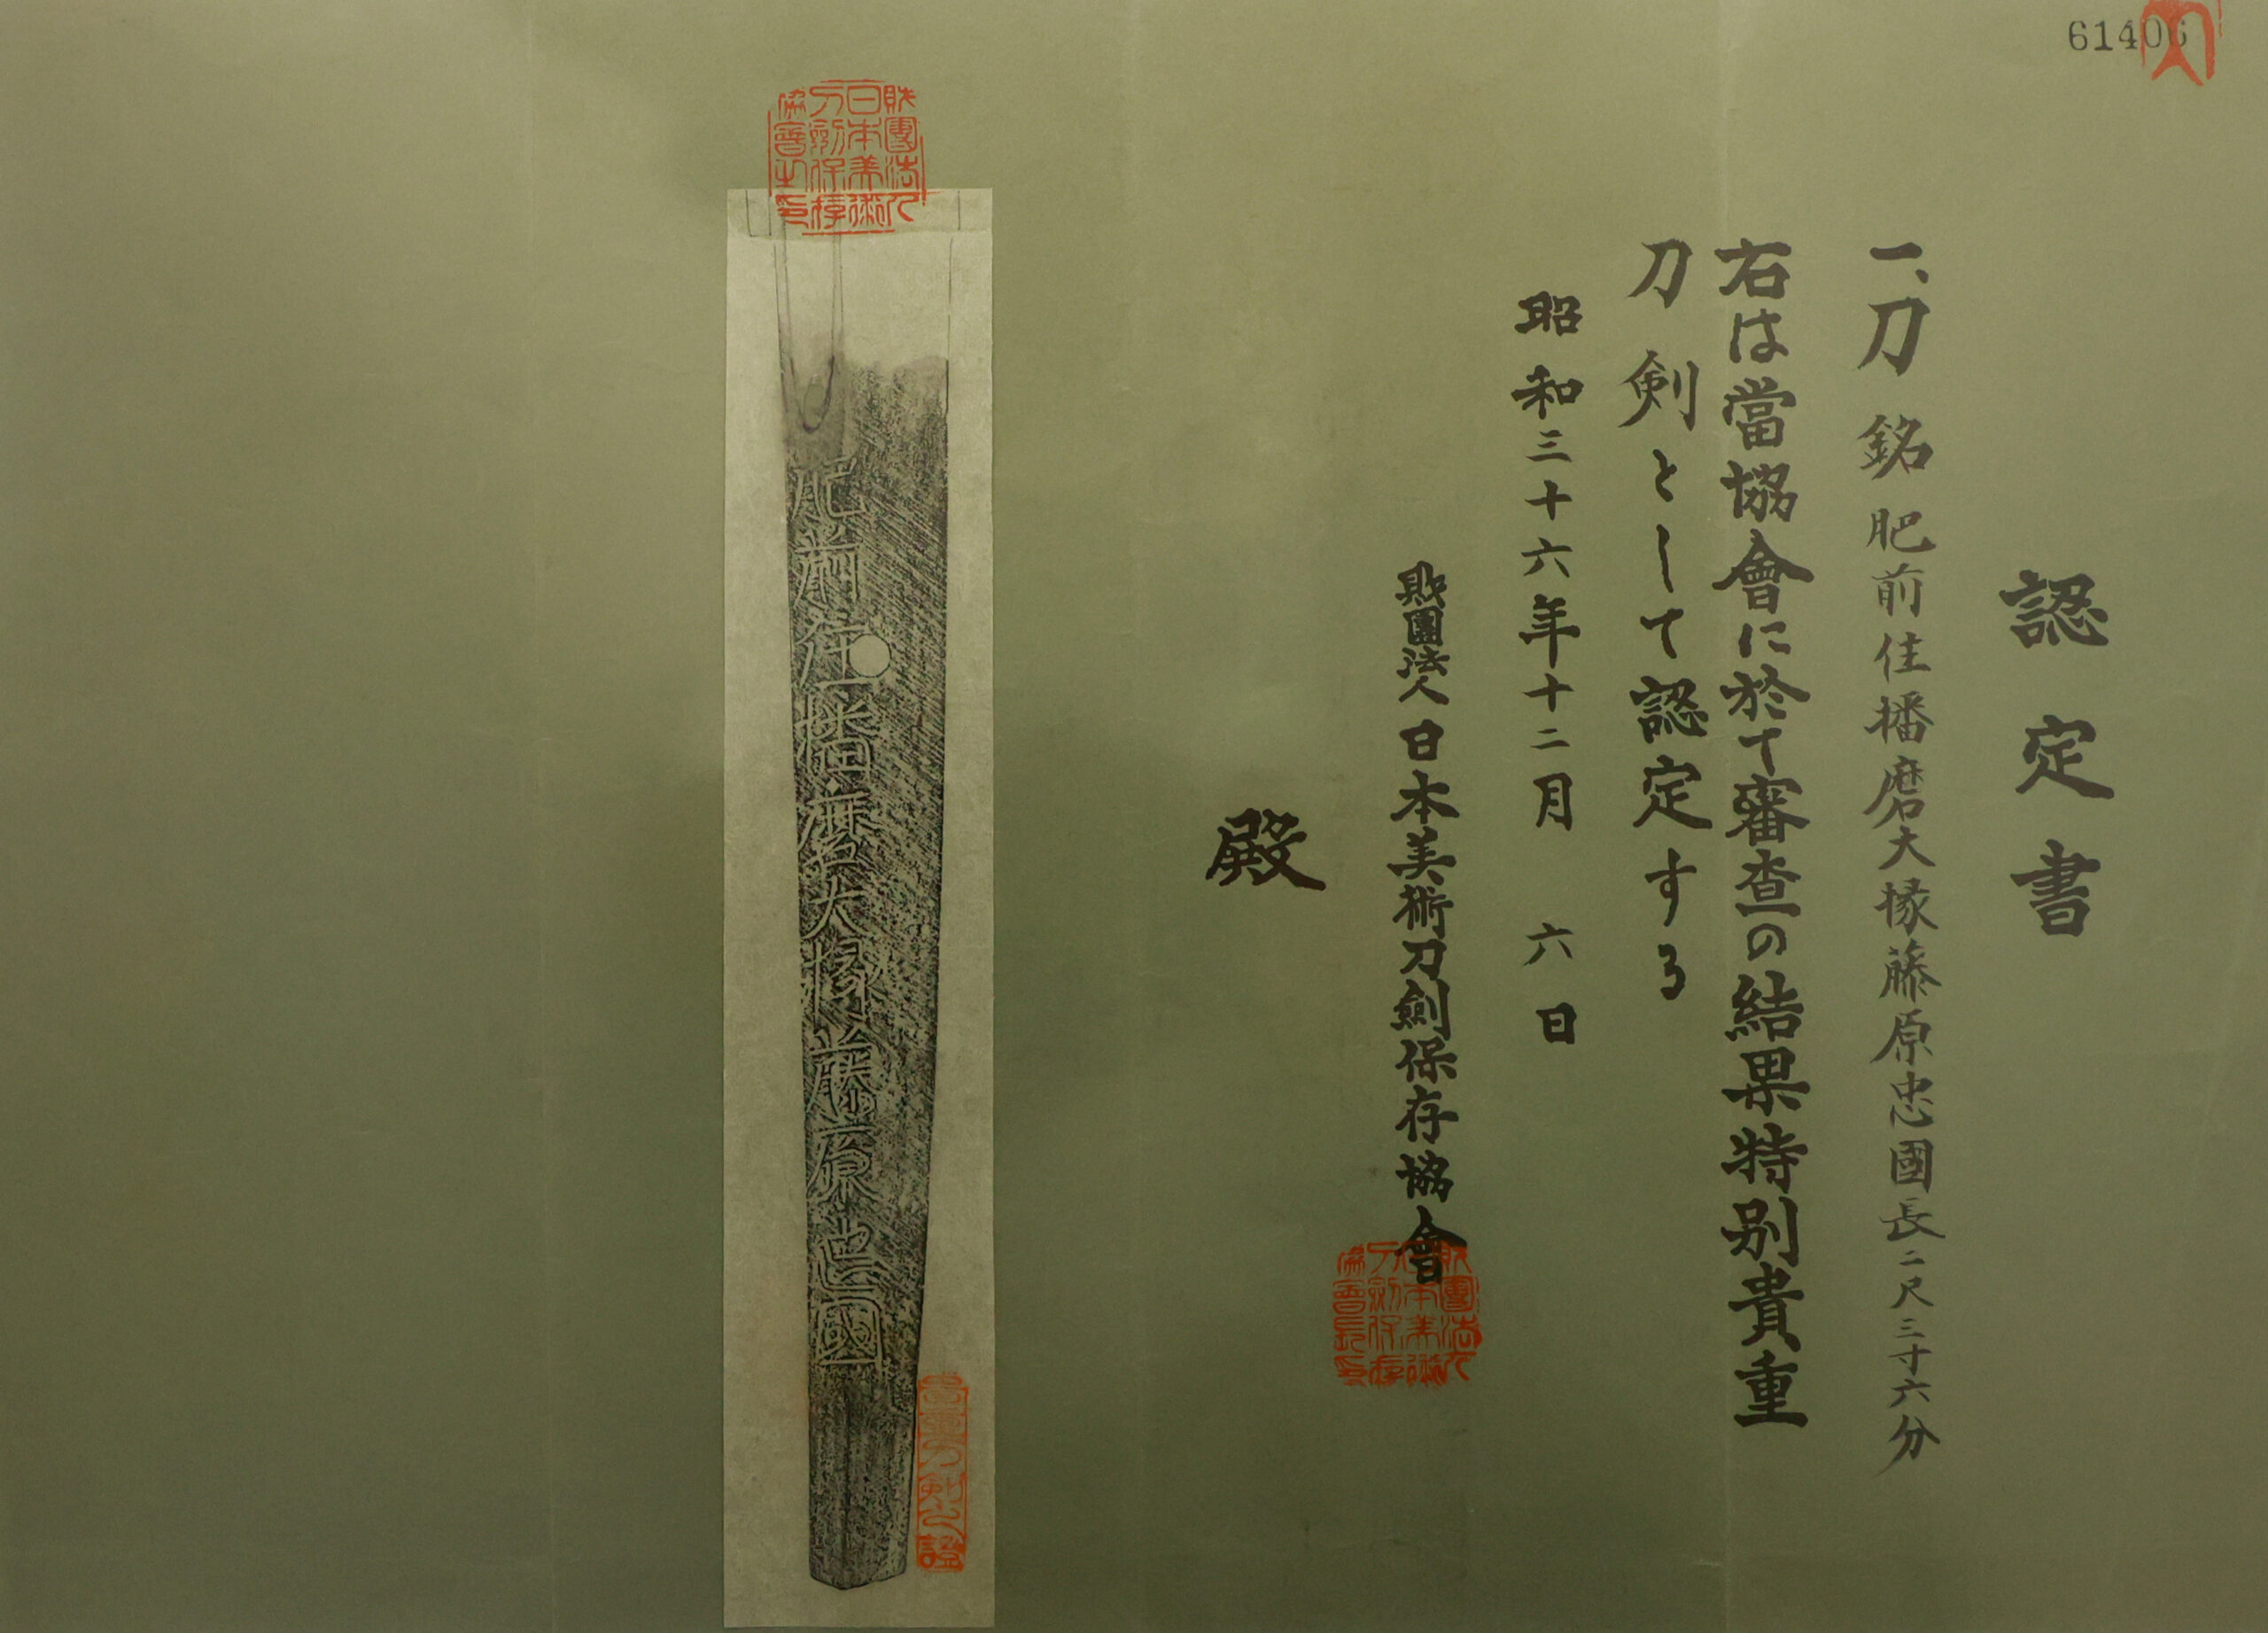 61406
認定書
一、刀 銘 肥前住播磨大掾藤原忠國 長二尺三寸六分
右は當協會に於て審査の結果特別貴重
刀剣として認定する
昭和三十六年十二月 六日
財團法人日本美術刀劍保存協會
財團法人日本美術刀劍保存協會長印
殿
財團法人日本美術刀劍保存協會之印
肥前住播磨大掾藤原忠國
貴重刀剣之證